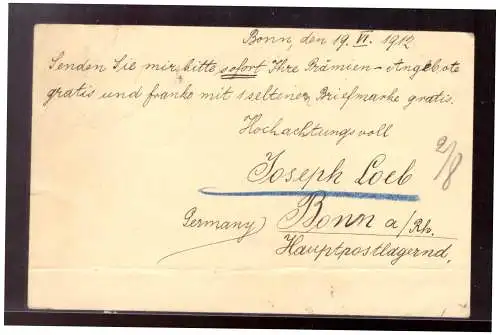 Bonn, den 19. VI. 1912
Senden Sie mir bitte sofort Ihre Prämien-Angebote
gratis und franko mit 1 seltener Briefmarke gratis.
Hochachtungsvoll
2/8
Joseph Loeb
(Germany) Bonn a/Rh.
Hauptpostlagernd.